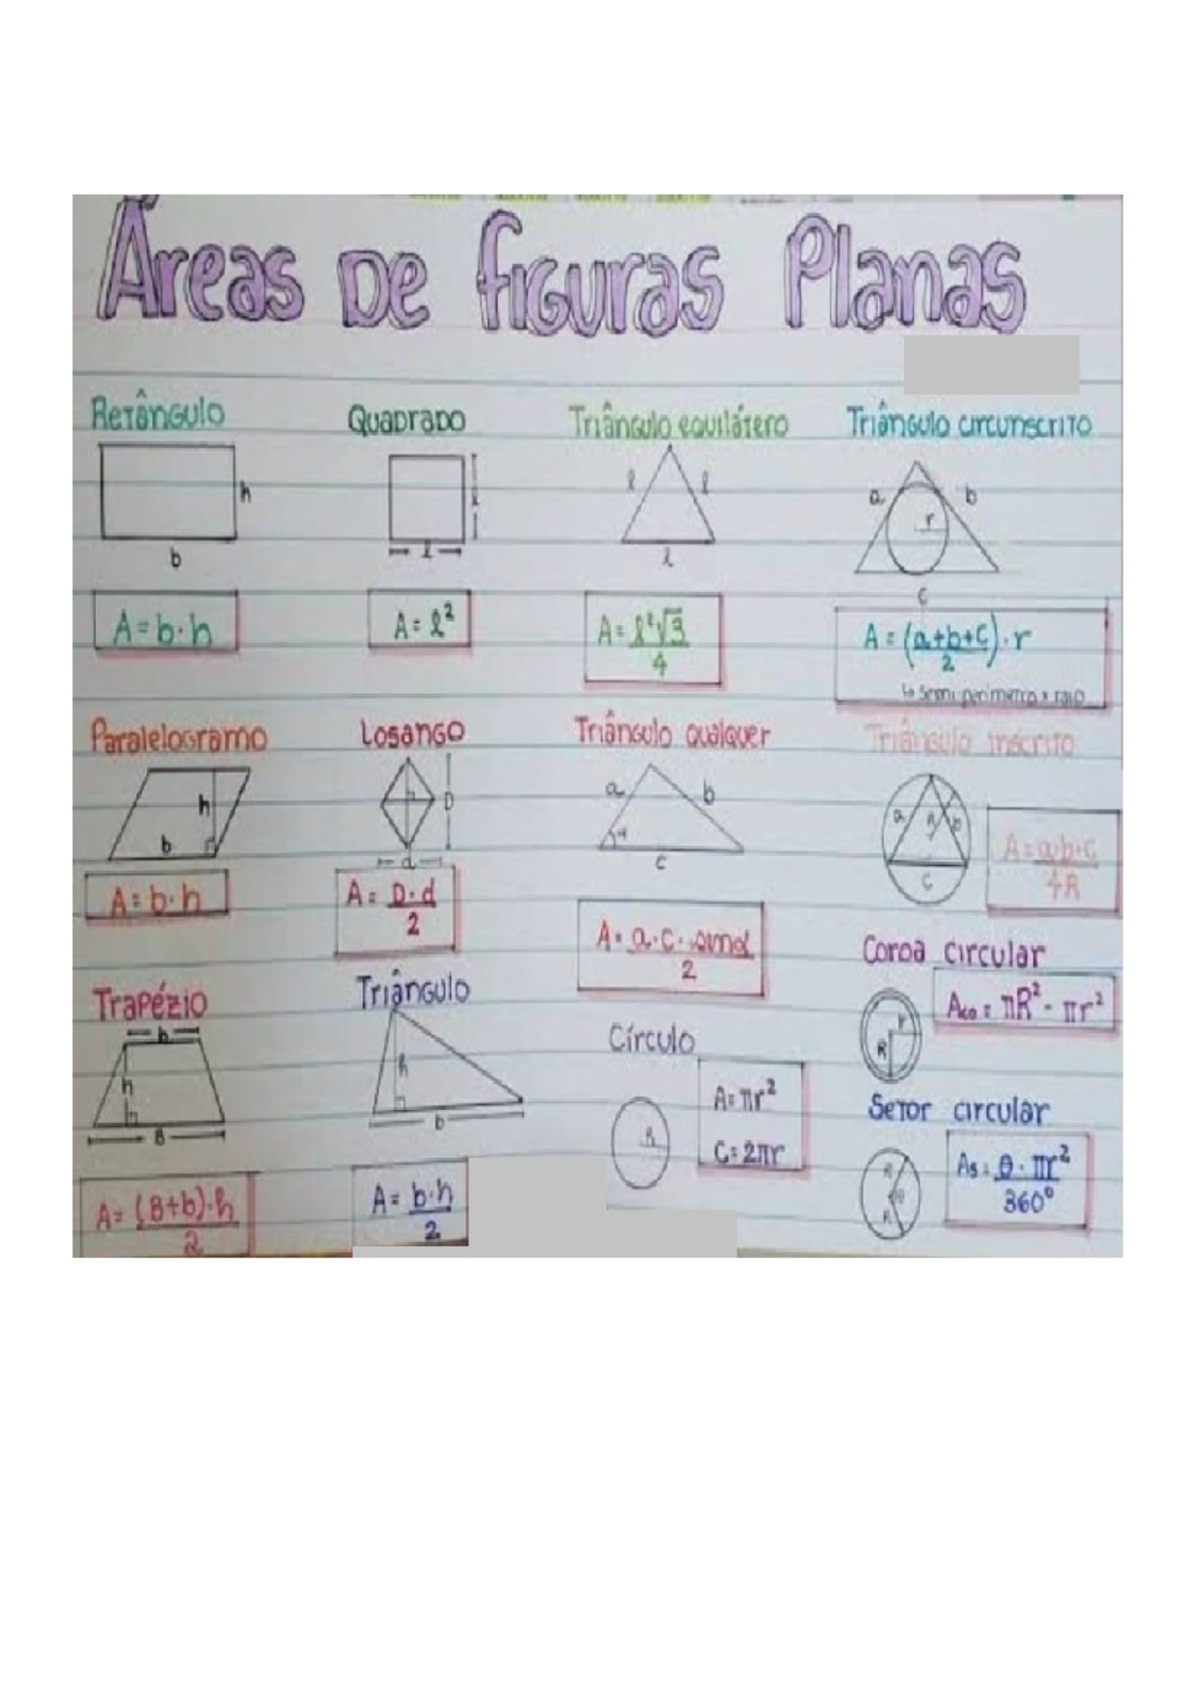 Áreas de figuras Planas
Retângulo
h
b
A = b · h
Quadrado
l
l
A = l²
Triângulo equilátero
l
l
l
A = l²√3/4
Triângulo circunscrito
a
b
r
c
A = (a+b+c/2) · r
↳ semi perímetro x raio
Paralelogramo
h
b
A = b · h
Losango
D
d
A = D · d/2
Triângulo qualquer
a
b
c
A = a · c · senα/2
Triângulo inscrito
a
R
b
c
A = a·b·c/4R
Trapézio
b
h
B
A = (B+b)·h/2
Triângulo
h
b
A = b·h/2
Círculo
R
A = πr²
C = 2πr
Coroa circular
r
R
Aco = πR² - πr²
Setor circular
R
θ
R
As = θ · πr²/360°